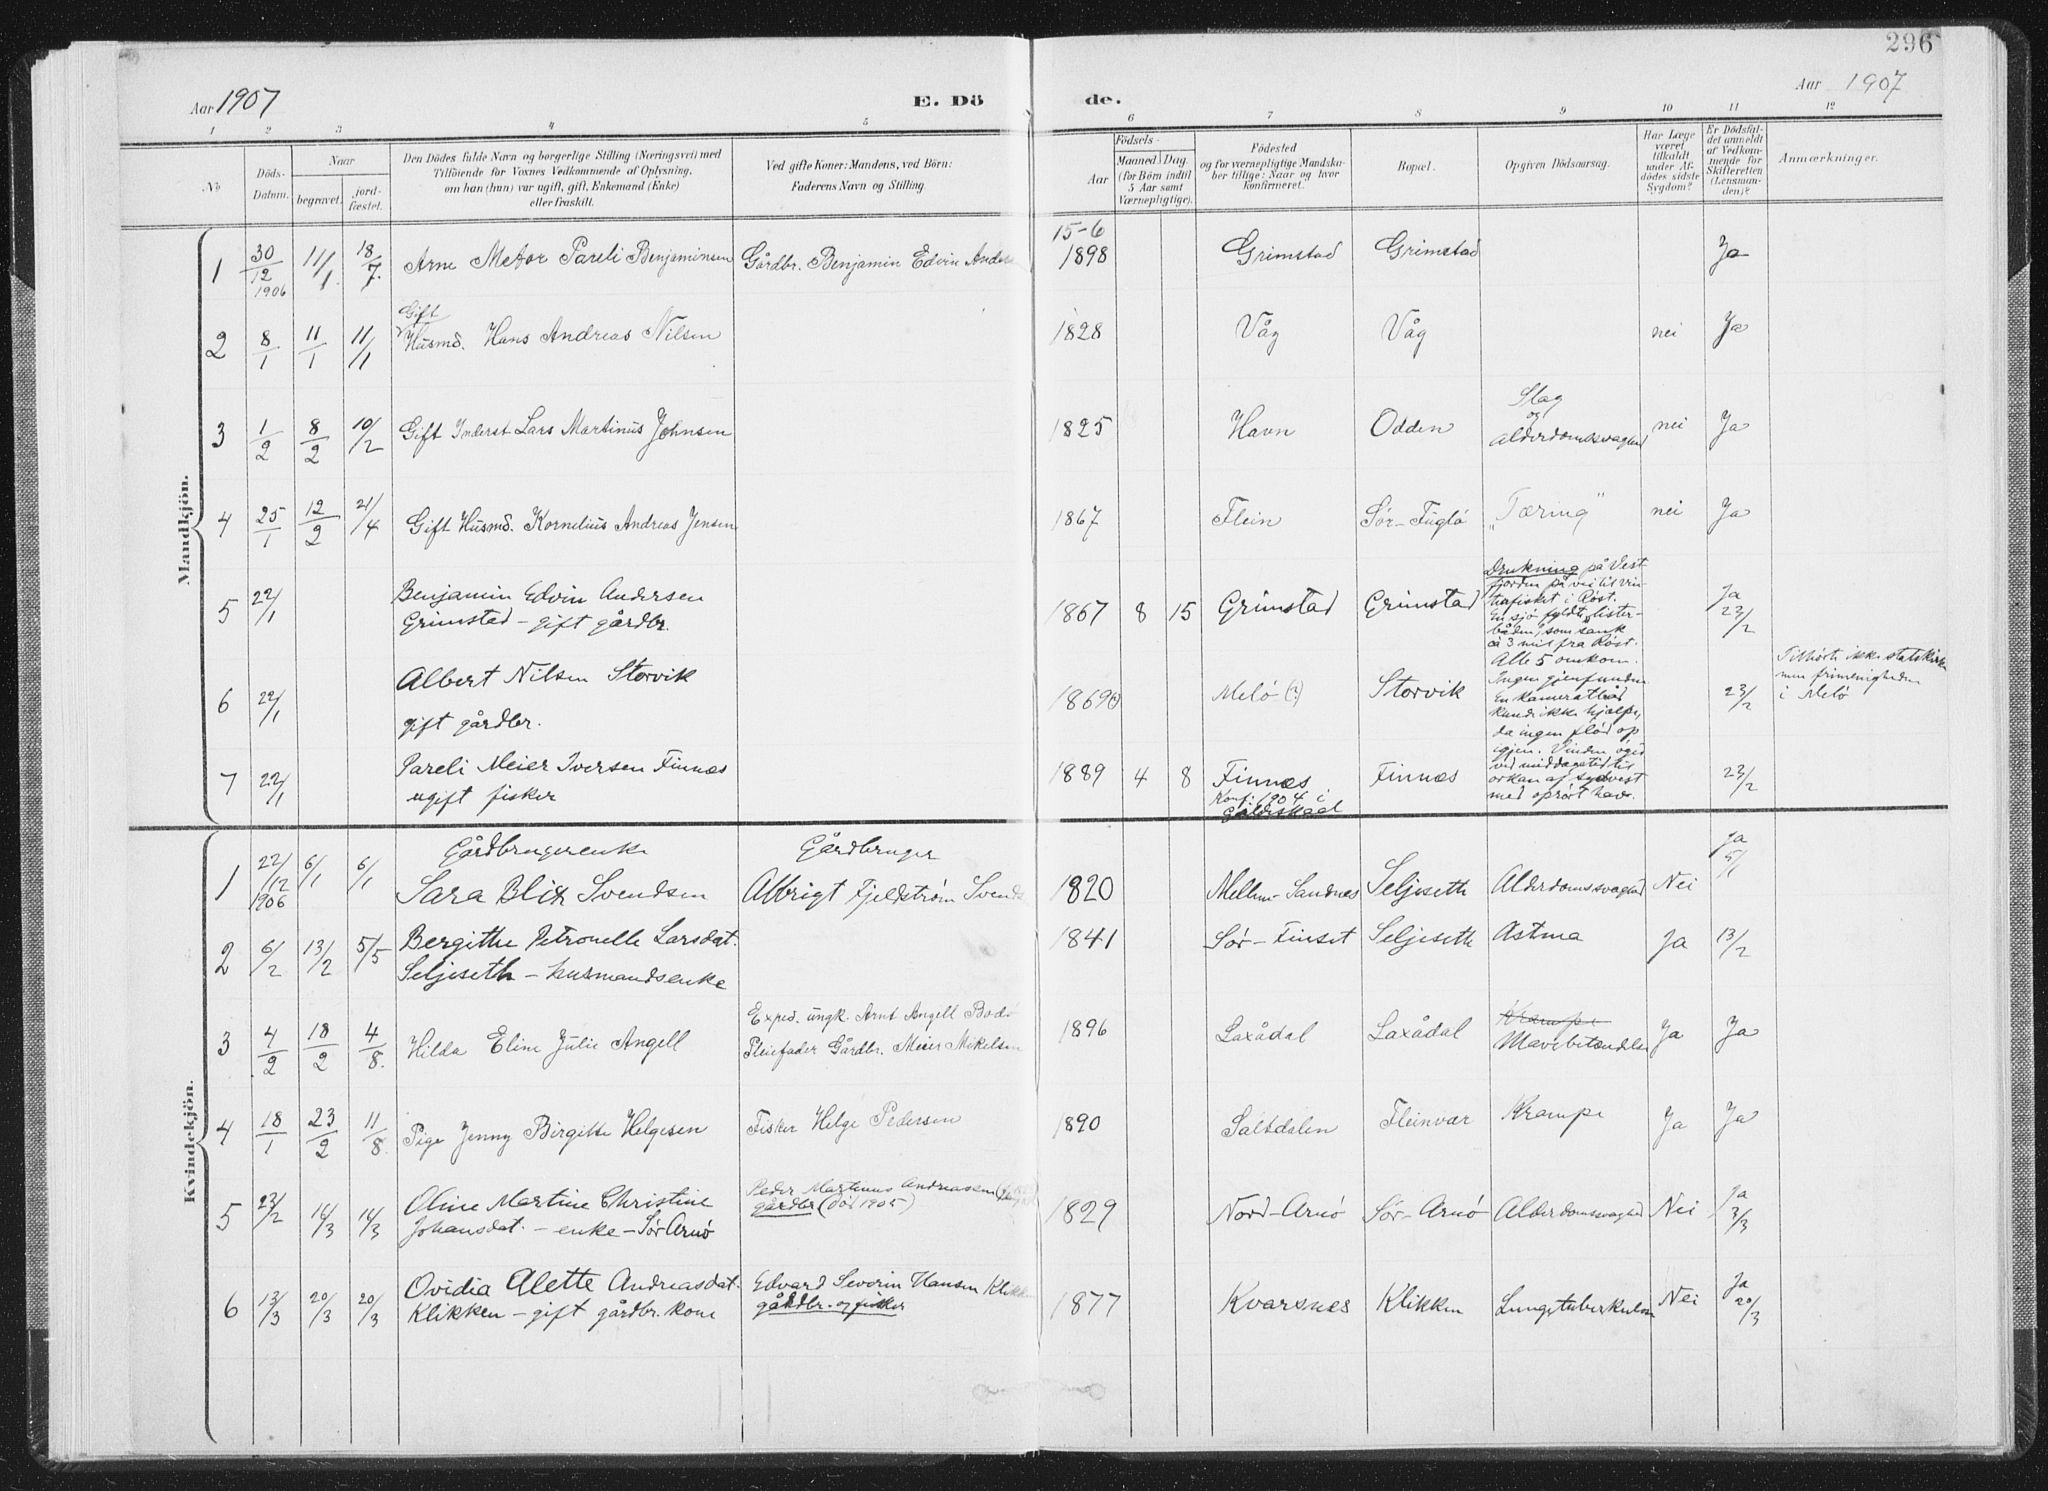 296
Aar 1907
E. Dö
de.
Aar 1907
1 2 3 4 5 6 7 8 9 10 11 12
No
Döds-Datum.
Naar
begravet.
jord-fæstet.
Den Dödes fulde Navn og borgerlige Stilling (Næringsvei) med
Tilföiende for Voxnes Vedkommende af Oplysning,
om han (hun) var ugift, gift, Enkemand (Enke)
eller fraskilt.
Ved gifte Koner: Mandens, ved Börn:
Faderens Navn og Stilling.
Födsels-
Aar
Maaned Dag.
(for Börn indtil
5 Aar samt
Værnepligtige).
Födested
og for værnepligtige Mandska-
ber tillige: Naar og hvor
konfirmeret.
Bopæl.
Opgiven Dödsaarsag.
Har Læge
været
tilkaldt
under Af-
dödes sidste
Sygdom?
Er Dödsfal-
det anmeldt
af Vedkom-
mende for
Skifteretten
(Lensman-
den)?
Anmærkninger.
Mandkjön.
1 30/12 1906 11/1. 18/7. Arne Metor Pareli Benjaminsen Gårdbr. Benjamin Edvin Anders 15-6 1898 Grimstad Grimstad Ja
Gift
2 8/1 11/1 11/1 Husmd. Hans Andreas Nilsen 1828 Våg Våg nei Ja
3 1/2 8/2 10/2 Gift Inderst Lars Martinus Johnsen 1825 Havn Odden Slag og alderdomssvaghed nei Ja
4 25/1 12/2 21/4 Gift Husmd. Kornelius Andreas Jensen 1867 Flein Sör-Fuglö "Tæring" nei Ja
5 22/1 Benjamin Edvin Andersen
Grimstad - gift gårdbr. 1867 8 15 Grimstad Grimstad Ja 23/2
Drukning på Vest
fjorden på vei til vin
terfisket i Röst.
En sjö fyldte "lister-
båden", som sank
ca 3 mil fra Röst.
Alle 5 omkom.
Ingen gjenfunden
En kameratbåd
kunde ikke hjælpe,
da ingen flöd op
igjen. Vinden øged
ved middagstid til
orkan af sydvest
med oprört hav.
6 22/1 Albert Nilsen Storvik
gift gårdbr. 1869 Melö (?) Storvik 23/2 Tilhörte ikke statskirken
men frimenigheden
i Melö
7 22/1 Pareli Meier Iversen Finnæs
ugift fisker 1889 4 8 Finnæs
Konf. 1904 i
Gildeskaal Finnæs 23/2
Kvindekjön.
1 22/12 1906 6/1 6/1 Gårdbrugerenke
Sara Blix Svendsen Gårdbruger
Albrigt Fjeldström Svends 1820 Mellem-Sandnes Seljeseth Alderdomssvaghed Nei Ja 5/1
2 6/2 13/2 5/5 Bergitte Petronelle Larsdat.
Seljeseth - husmandsenke 1841 Sör-Finset Seljeseth Astma Ja 13/2
3 4/2 18/2 4/8. Hilda Eline Julie Angell Exped. ungk. Arnt Angell Bodö
Pleiefader Gårdbr. Meier Mikelsen 1896 Laxådal Laxådal Krampe
Mavebetændelse Ja Ja
4 18/1 23/2 11/8. Pige Jenny Birgitte Helgesen Fisker Helge Pedersen 1890 Saltdalen Fleinvær Krampe Ja Ja
5 23/2 14/3 14/3 Oline Martine Christine
Johansdat. - enke - Sör Arnö Peder Martinus Andreassen
gårdbr (död 1905) 1829 Nord-Arnö Sör-Arnö Alderdomssvaghed Nei Ja 3/3
6 13/3 20/3 20/3 Ovidia Alette Andreasdat.
Klikken - gift gårdbr. kone Edvard Severin Hansen Klikk
gårdbr. og fisker 1877 Kvarsnes Klikken Lungetuberkulose Nei Ja 20/3